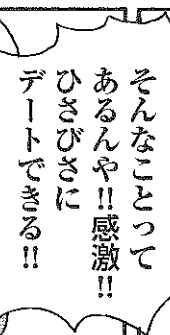 そんなことって
あるんや!!感激!!
ひさびさに
デートできる!!